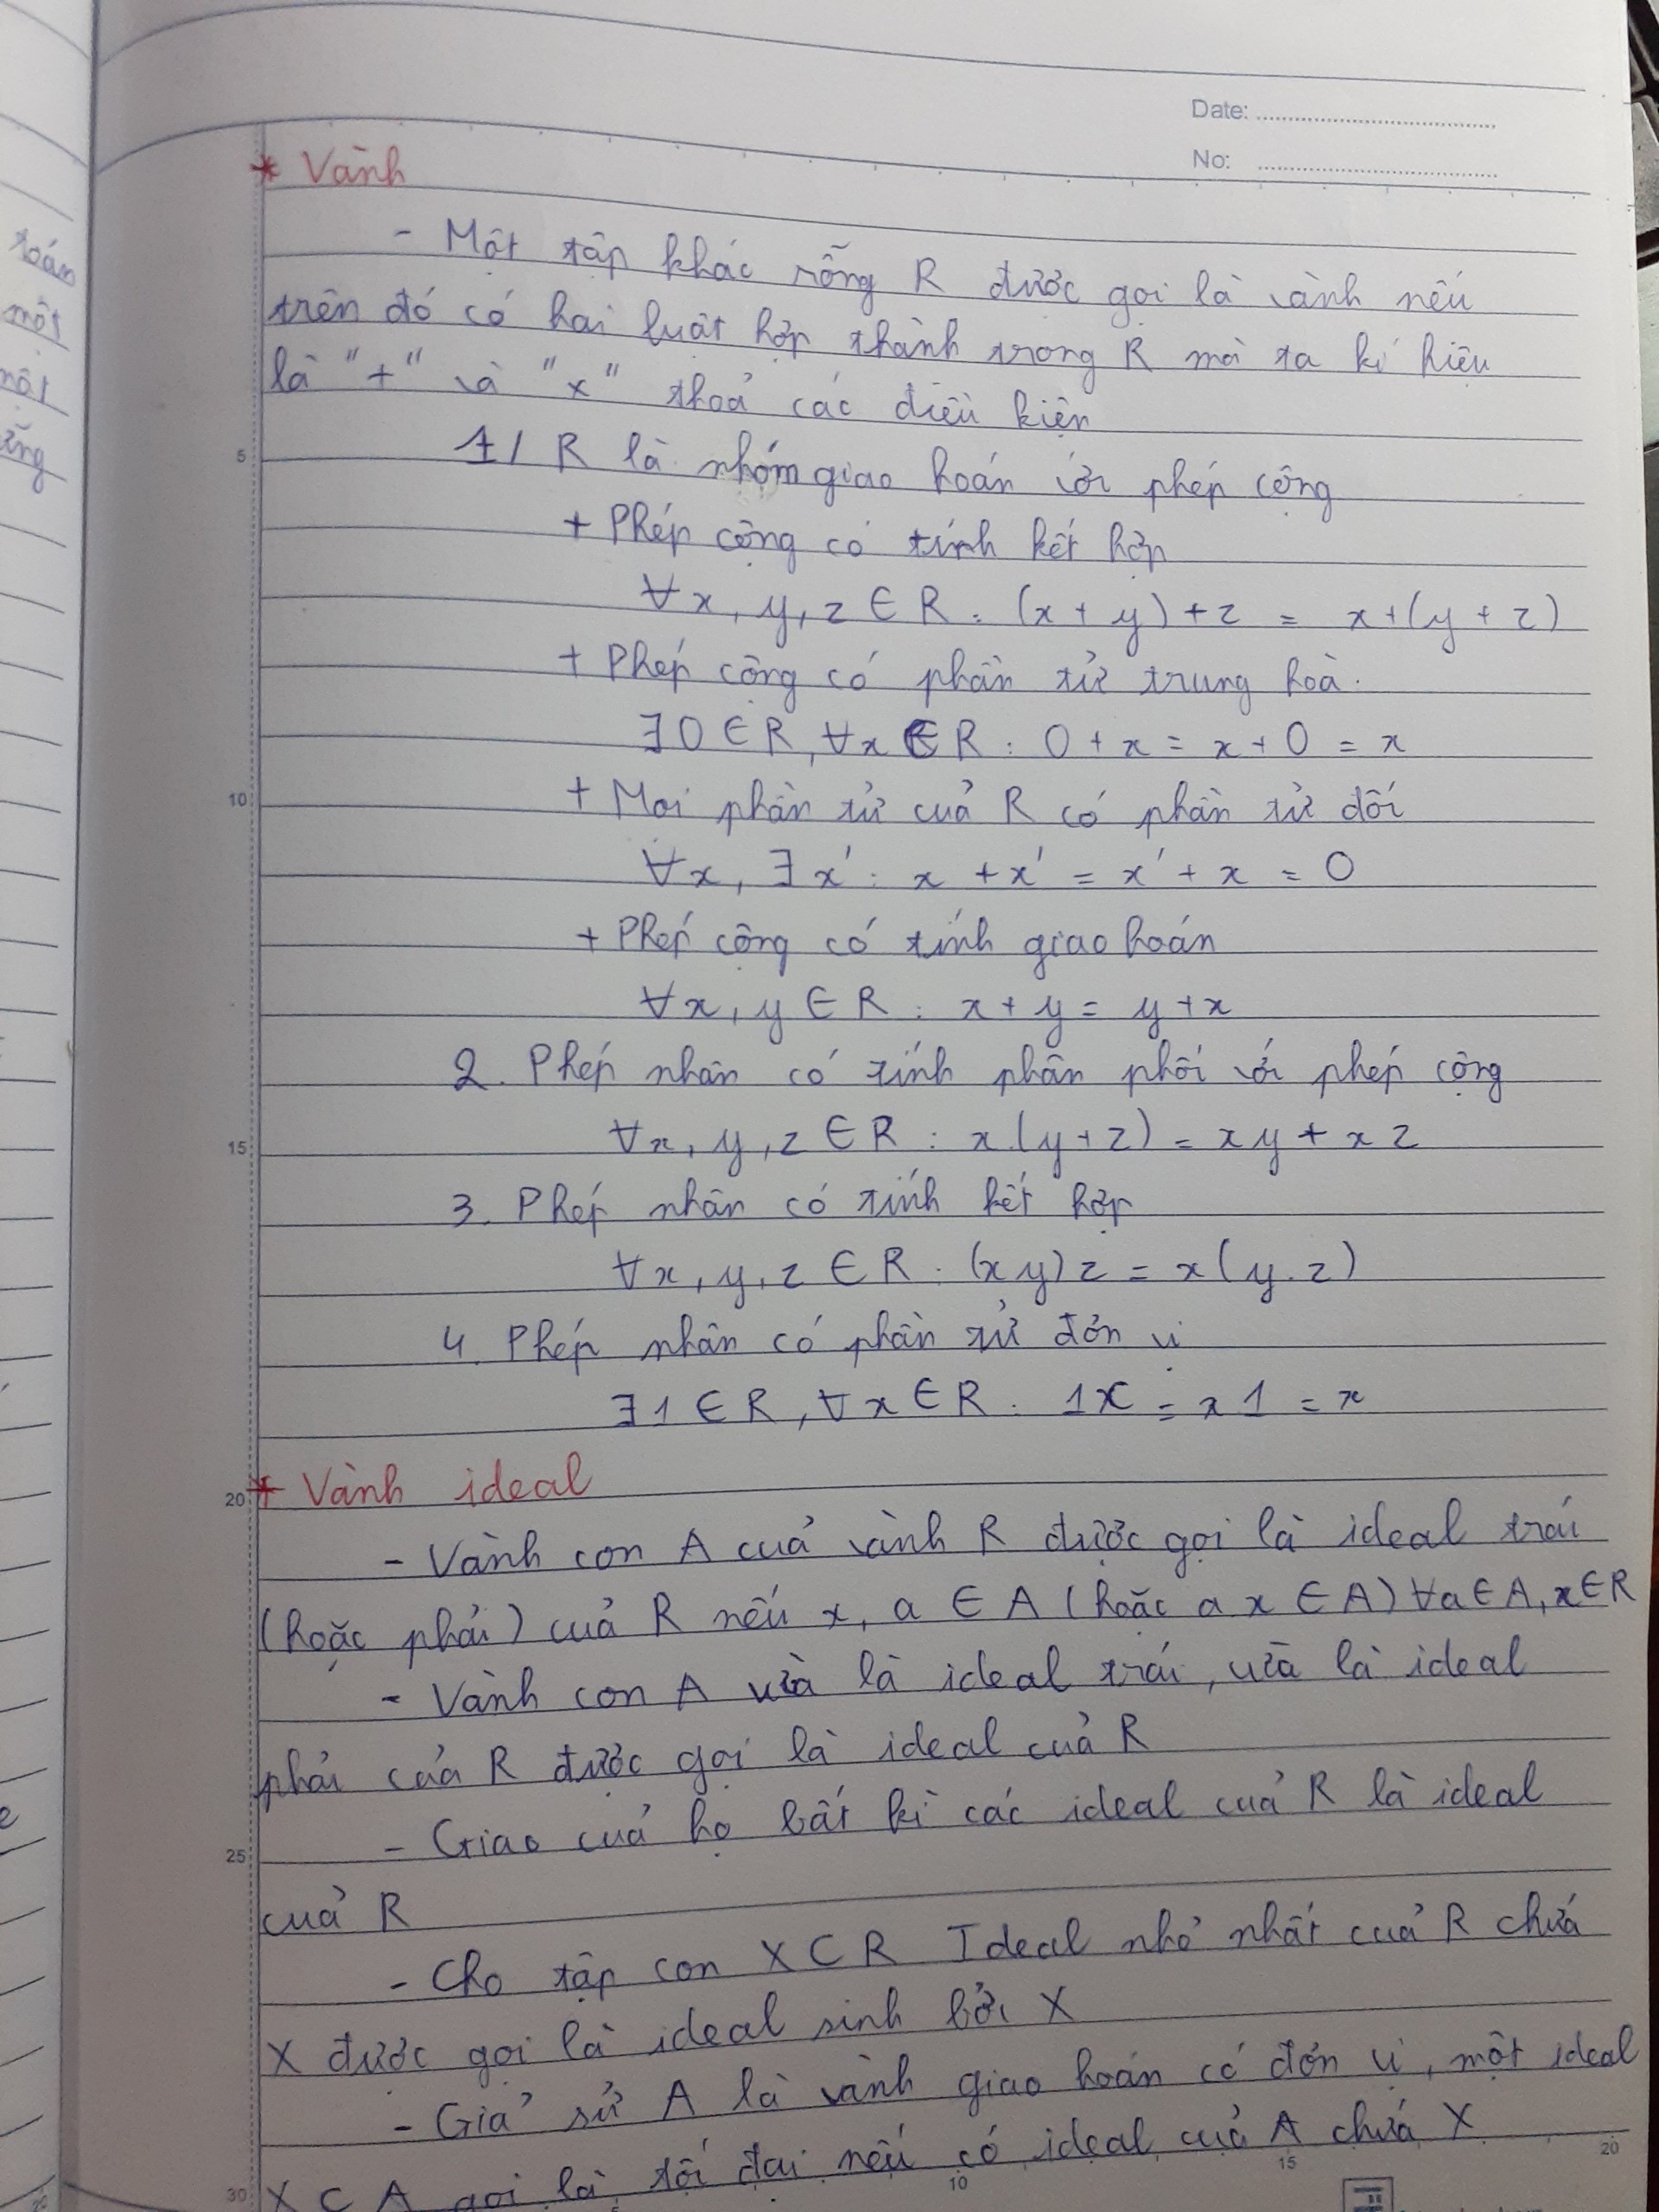 Date:
No:
* Vành
- Một tập khác rỗng R được gọi là vành nếu
trên đó có hai luật hợp thành trong R mà ta kí hiệu
là "+" và "x" thoả các điều kiện
1/ R là nhóm giao hoán với phép cộng
+ Phép cộng có tính kết hợp
∀x, y, z ∈ R : (x + y) + z = x + (y + z)
+ Phép cộng có phần tử trung hoà.
∃0 ∈ R, ∀x ∈ R : 0 + x = x + 0 = x
+ Mọi phần tử của R có phần tử đối
∀x, ∃x' : x + x' = x' + x = 0
+ Phép cộng có tính giao hoán
∀x, y ∈ R : x + y = y + x
2. Phép nhân có tính phân phối với phép cộng
∀x, y, z ∈ R : x.(y + z) = xy + xz
3. Phép nhân có tính kết hợp
∀x, y, z ∈ R : (xy)z = x(y.z)
4. Phép nhân có phần tử đơn vị
∃1 ∈ R, ∀x ∈ R : 1x = x1 = x
* Vành ideal
- Vành con A của vành R được gọi là ideal trái
(hoặc phải) của R nếu x, a ∈ A (hoặc a x ∈ A) ∀a ∈ A, x ∈ R
- Vành con A vừa là ideal trái, vừa là ideal
phải của R được gọi là ideal của R
- Giao của họ bất kì các ideal của R là ideal
của R
- Cho tập con X ⊂ R Ideal nhỏ nhất của R chứa
X được gọi là ideal sinh bởi X
- Giả sử A là vành giao hoán có đơn vị, một ideal
X ⊂ A gọi là tối đại nếu có ideal của A chứa X
5
10
15
20
25
30
10
15
20
toán
một
một